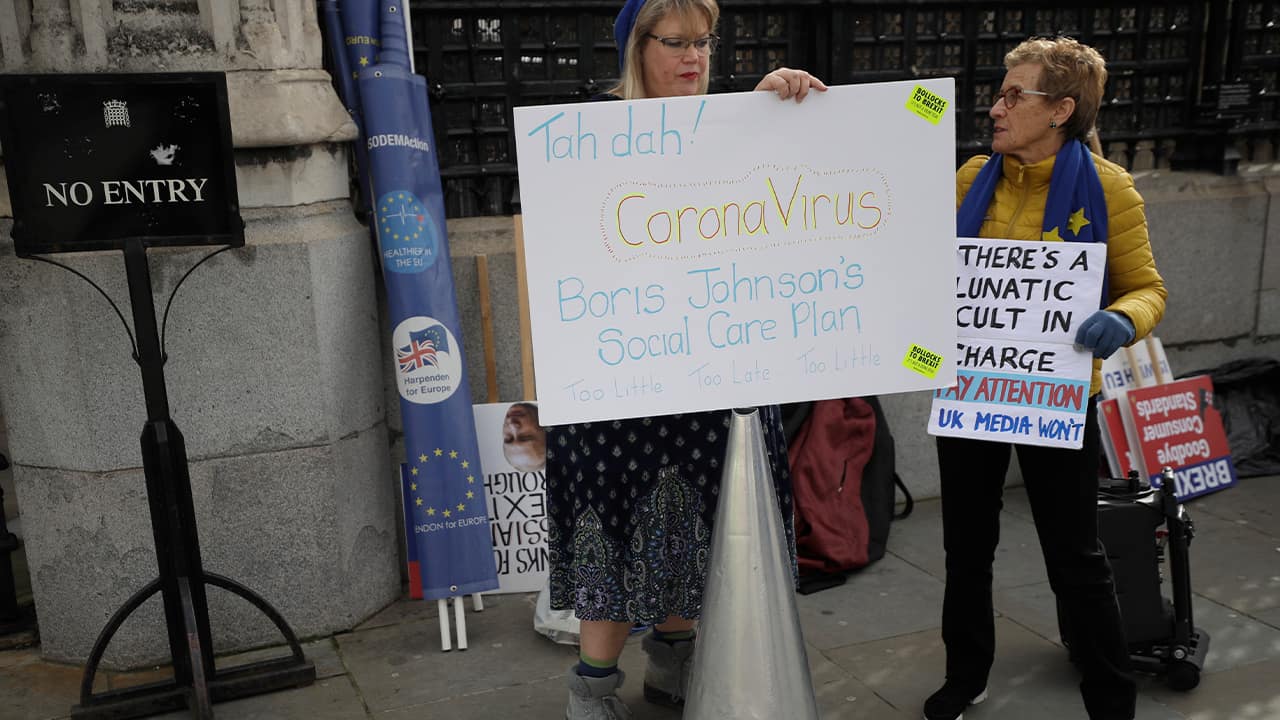 NO ENTRY
SODEMAction
HEALTHIER IN
THE EU
Harpenden
for Europe
for EUROPE
Tah dah!
CoronaVirus
Boris Johnson's
Social Care Plan
Too Little Too Late Too Little
BOLLOCKS
TO BREXIT
BOLLOCKS
TO BREXIT
THERE'S A
LUNATIC
CULT IN
CHARGE
PAY ATTENTION
UK MEDIA WON'T
Standards
Consumer
Goodbye
BREXIT